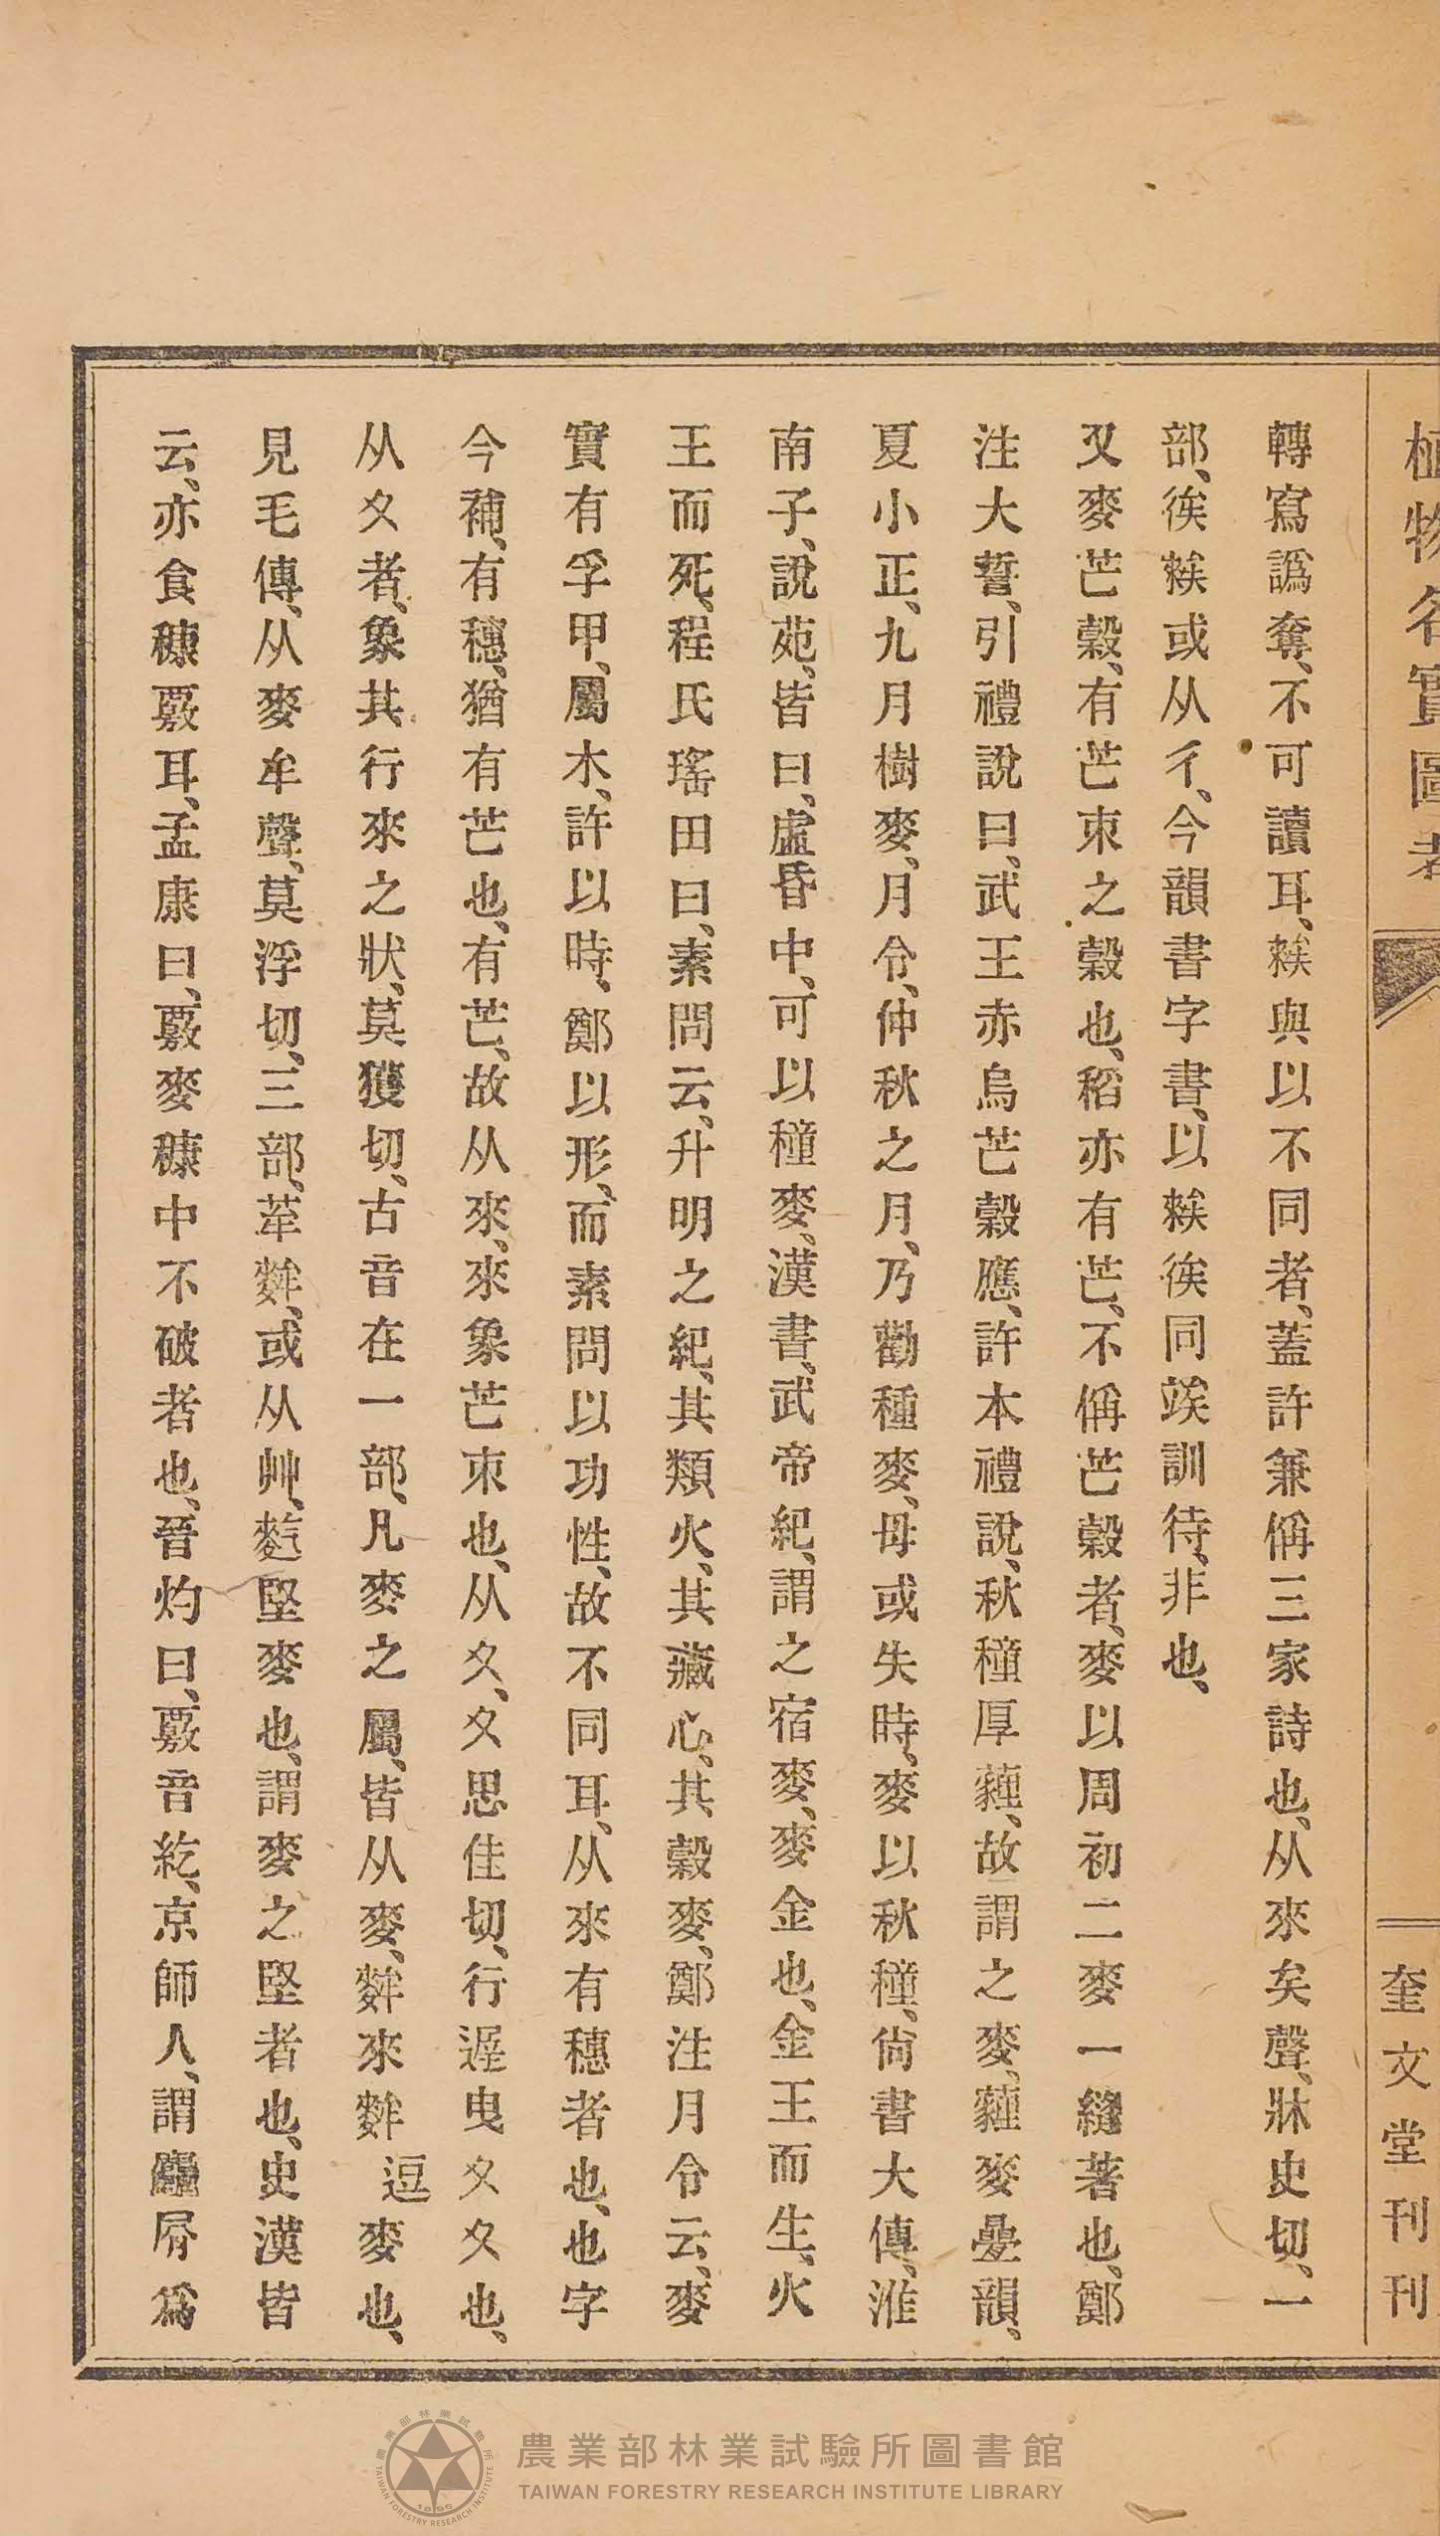 植物名實圖考
奎文堂刊
轉寫譌奪、不可讀耳、䅘與以不同者、蓋許兼偁三家詩也、从來矣聲、牀史切、一
部、徯䅘或从彳、今韻書字書、以䅘徯同竢訓待、非也、
又麥芒穀、有芒朿之穀也、稻亦有芒、不偁芒穀者、麥以周初二麥一縫著也、鄭
注大誓、引禮說曰、武王赤烏芒穀應、許本禮說、秋種厚薶、故謂之麥、薶麥疊韻、
夏小正、九月樹麥、月令、仲秋之月、乃勸種麥、毋或失時、麥以秋種、尙書大傳、淮
南子、說苑、皆曰、虛昏中、可以種麥、漢書、武帝紀、謂之宿麥、麥金也、金王而生、火
王而死、程氏瑤田曰、素問云、升明之紀、其類火、其藏心、其穀麥、鄭注月令云、麥
實有孚甲、屬木、許以時、鄭以形、而素問以功性、故不同耳、从來有穗者也、也字
今補、有穗、猶有芒也、有芒、故从來、來象芒朿也、从夊、夊思佳切、行遲曳夊夊也、
从夊者、象其行來之狀、莫獲切、古音在一部、凡麥之屬、皆从麥、麰來麰逗麥也、
見毛傳、从麥牟聲、莫浮切、三部、䓬麰、或从艸、麧堅麥也、謂麥之堅者也、史漢皆
云、亦食穅覈耳、孟康曰、覈麥穅中不破者也、晉灼曰、覈音紇、京師人、謂麤屑爲
農業部林業試驗所圖書館
TAIWAN FORESTRY RESEARCH INSTITUTE LIBRARY
農業部林業試驗所
TAIWAN FORESTRY RESEARCH INSTITUTE
1895